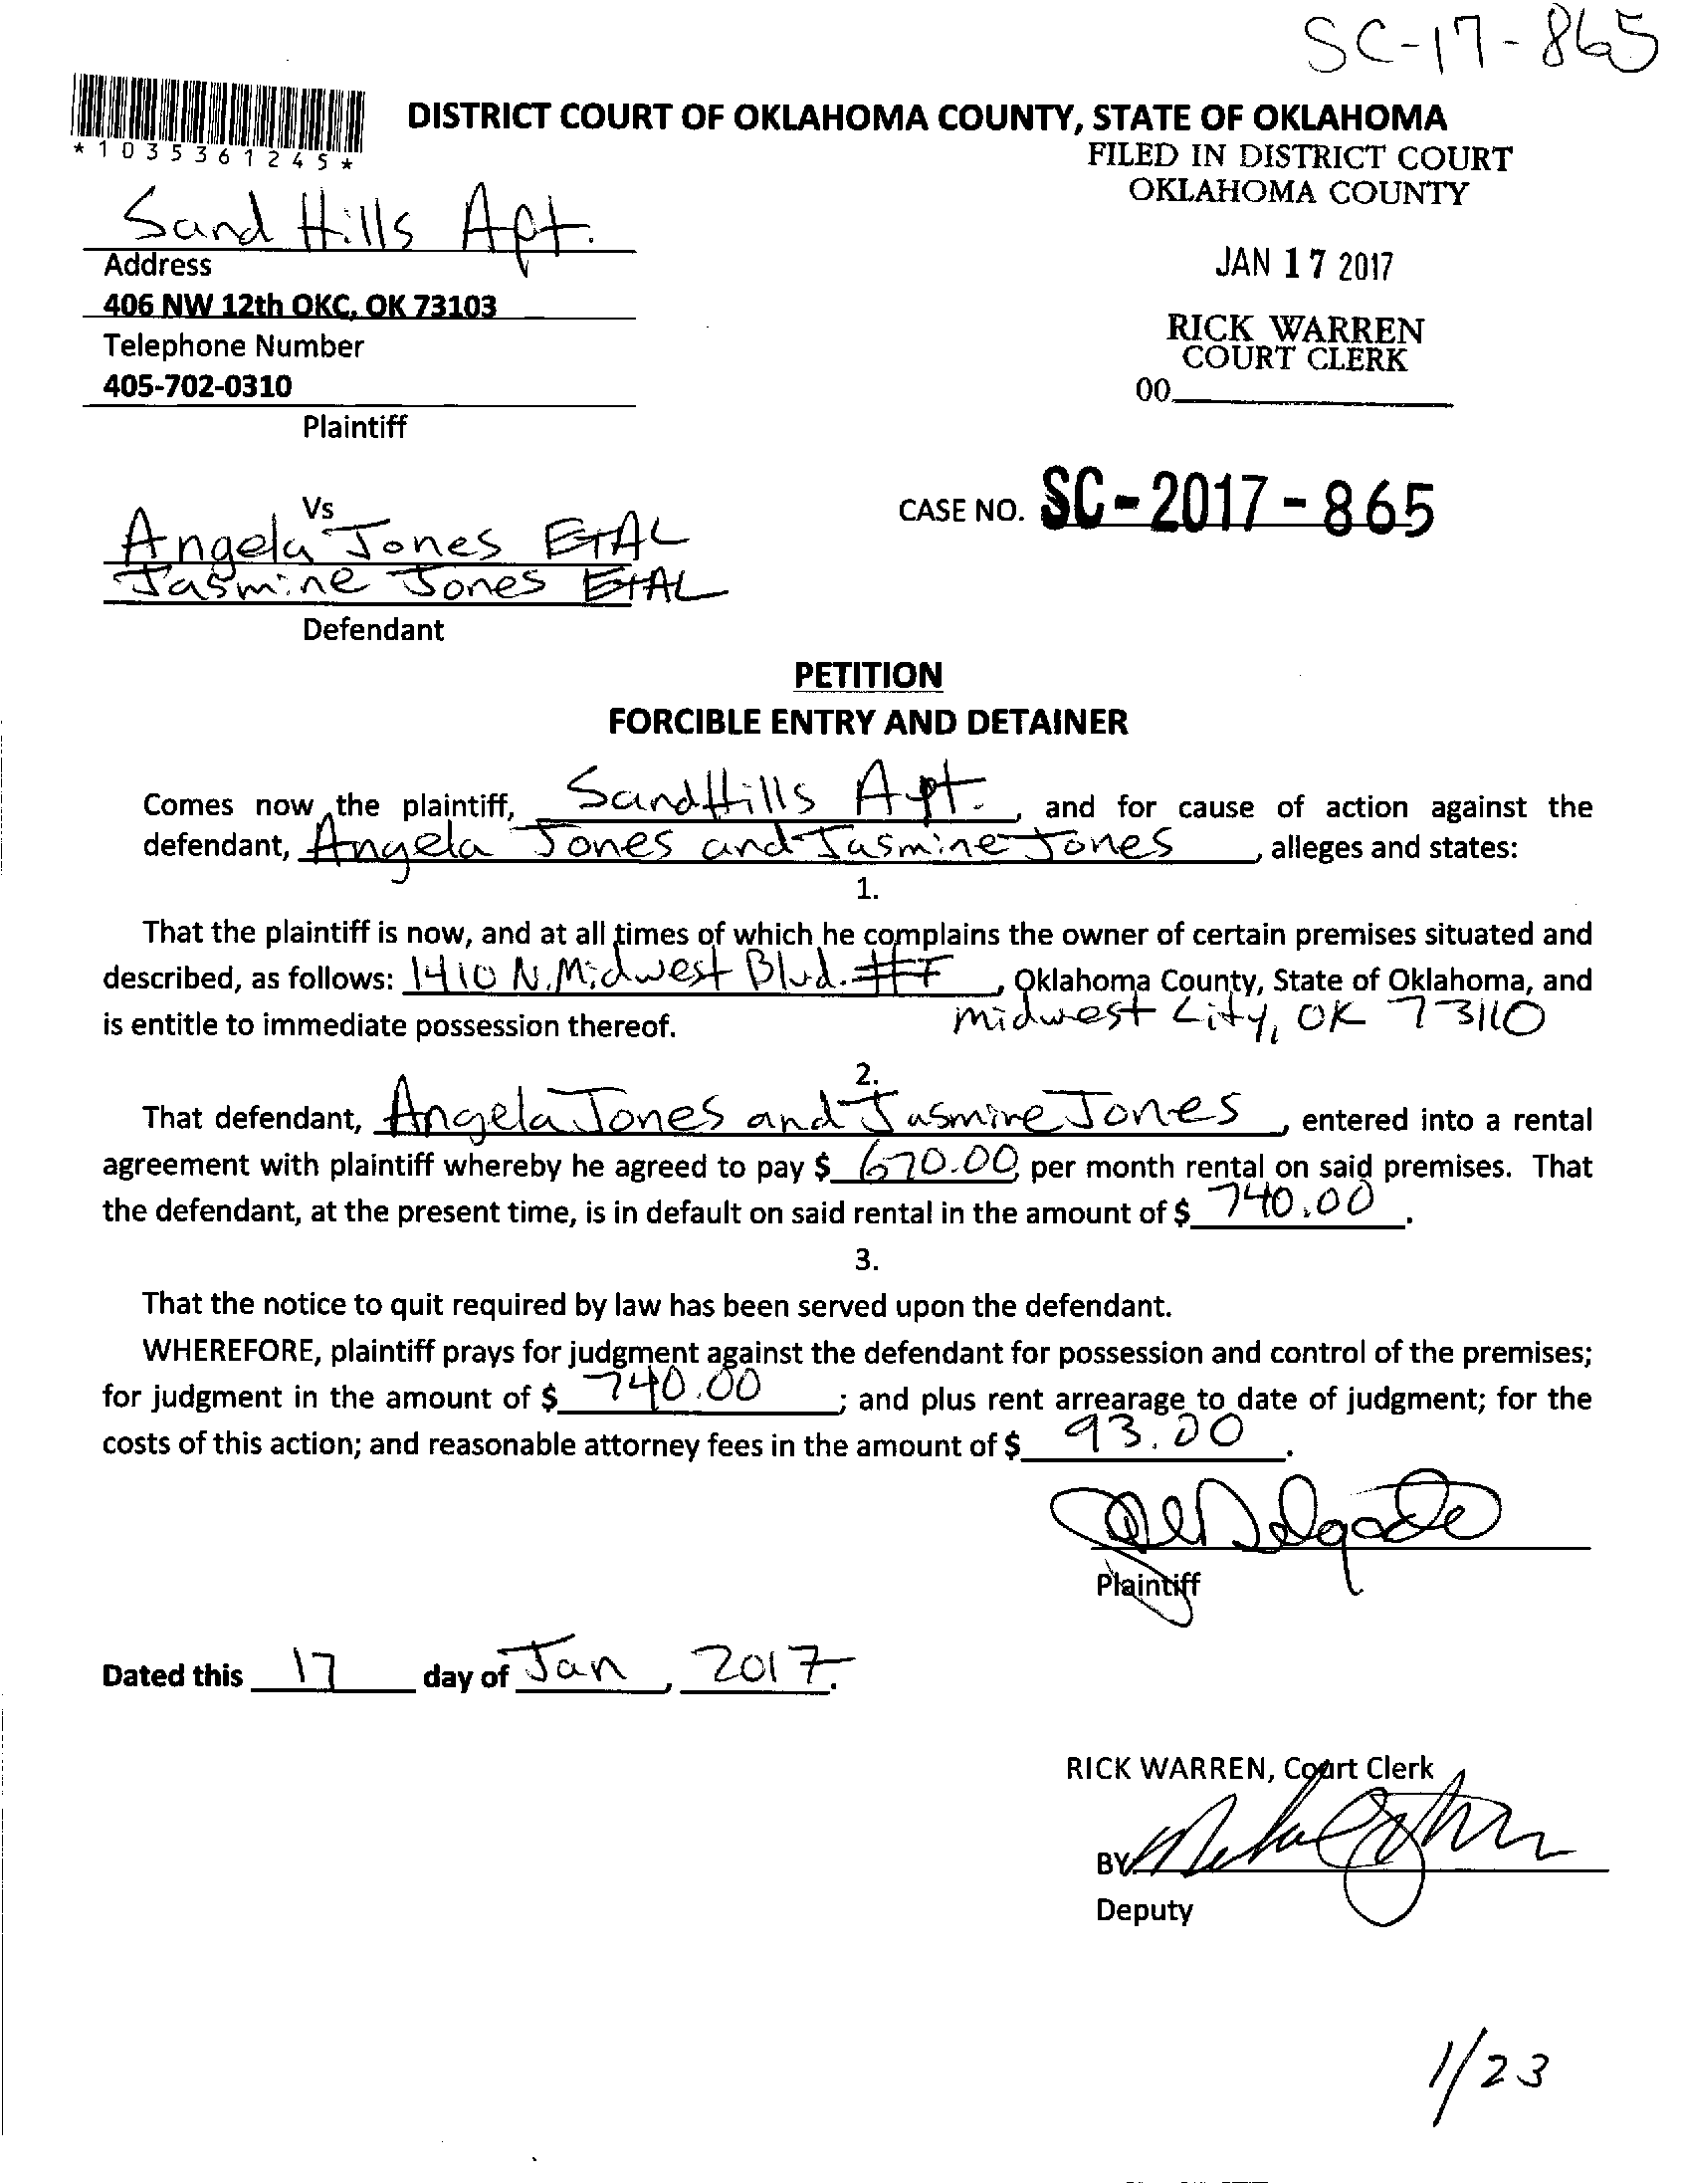 SC-17-865
DISTRICT COURT OF OKLAHOMA COUNTY, STATE OF OKLAHOMA
*1035361245*
FILED IN DISTRICT COURT
OKLAHOMA COUNTY
Sand Hills Apt.
Address
JAN 17 2017
406 NW 12th OKC, OK 73103
Telephone Number
RICK WARREN
COURT CLERK
405-702-0310
00
Plaintiff
Vs
CASE NO. SC-2017-865
Angela Jones EtAL
Jasmine Jones EtAL
Defendant
PETITION
FORCIBLE ENTRY AND DETAINER
Comes now the plaintiff, Sand Hills Apt. , and for cause of action against the
defendant, Angela Jones and Jasmine Jones , alleges and states:
1.
That the plaintiff is now, and at all times of which he complains the owner of certain premises situated and
described, as follows: 1410 N. Midwest Blvd. #F , Oklahoma County, State of Oklahoma, and
is entitle to immediate possession thereof. Midwest City, OK 73110
2.
That defendant, Angela Jones and Jasmine Jones , entered into a rental
agreement with plaintiff whereby he agreed to pay $ 670.00, per month rental on said premises. That
the defendant, at the present time, is in default on said rental in the amount of $ 740.00 .
3.
That the notice to quit required by law has been served upon the defendant.
WHEREFORE, plaintiff prays for judgment against the defendant for possession and control of the premises;
for judgment in the amount of $ 740.00 ; and plus rent arrearage to date of judgment; for the
costs of this action; and reasonable attorney fees in the amount of $ 93.00 .
Delgado
Plaintiff
Dated this 17 day of Jan , 2017.
RICK WARREN, Court Clerk
BY:
Deputy
1/23